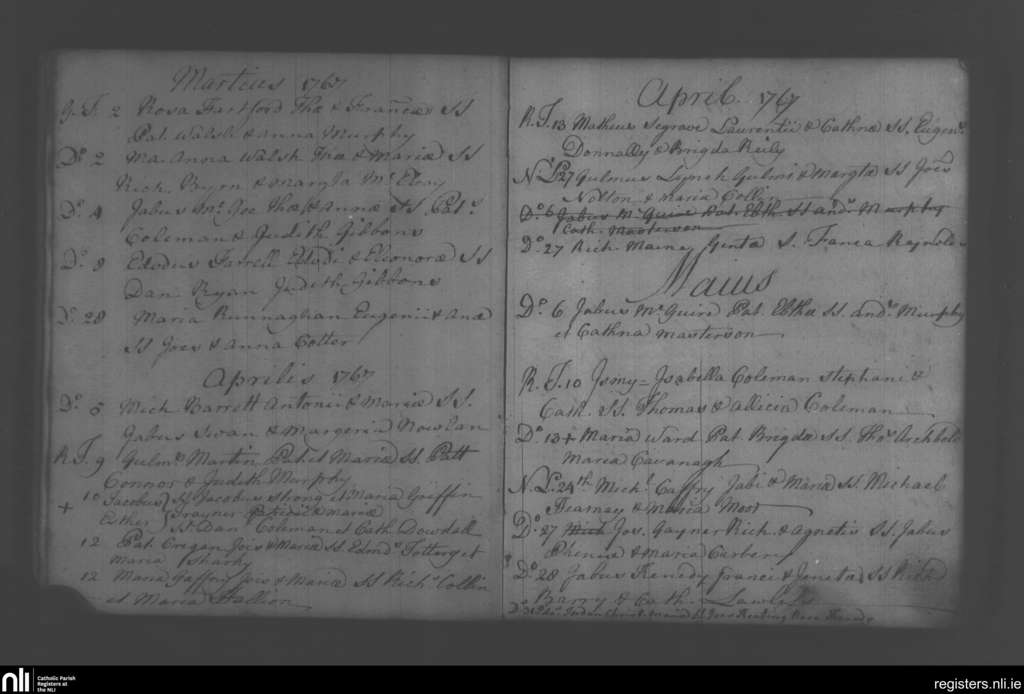 Martius 1767
G. F. 2 Rosa Hartford Thæ & Franciæ SS
Pat. Walsh & Anna Murphy
Do. 2 Ma. Anna Walsh Thæ & Mariæ SS
Rich. Byrn & Margta McElroy
Do. 4 Jabus Mc Gee Thæ & Annæ SS Patt.
Coleman & Judith Gibbons
Do. 8 Edodus Farrell Edodi & Eleonoræ SS
Dan Ryan Judith Gibbons
Do. 28 Maria Runnaghan Eugenii & Anæ
SS Joes & Anna Cotter
Aprilis 1767
Do. 5 Mich Barrett Antonii & Mariæ SS.
Jabus Swan & Margeria Nowlan
R. F. 9 Gulms Martin Pat et Mariæ SS. Patt
Connor & Judith Murphy
+ 10 Jacobus SS Jacobus Strong et Maria Griffin
Esther Traynor Patricii & Mariæ
SS Dan Coleman et Cath. Dowdall
12 Pat. Cregan Jois & Maria SS Edmd et
Maria Sharky
12 Maria Gaffny Jois & Mariæ SS Richd Collin
et Maria Hallion
April. 1767
R. F. 13 Matheus Segrave Laurentii & Cathnæ SS. Eugens
Donnally & Brigda Reily
N. L. 27 Gulmus Lynch Gulmi & Margtæ SS Joes
Nolton & Maria Colli
Do. 6 Jabus Mc Guire Pat. Elth. SS andw Murphy
Cath. Masterson
Do. 27 Rich. Mainey S. Franca Raynolds
Maius
Do. 6 Jabus Mc Guire Pat. Elthæ SS. andws Murphy
et Cathna Masterson
R. F. 10 Ismy = Isabella Coleman Stephani &
Cath. SS. Thomas & Allicia Coleman
Do. 13 + Maria Ward Pat. Brigdæ SS. Thos. Archbold
Maria Cavanagh
N. L. 24th. Michl. Caffry Jabi & Maria SS. Michael
Kearney & Maria Moor
Do. 27 Mich Jos. Gayner Rich. & Agnetis SS. Jabus
Phenix & Maria Carbery
Do. 28 Jabus Kenedy Franci & SS Rich.
Barry & Cath. Lawless
nli
Catholic Parish
Registers at
the NLI
registers.nli.ie